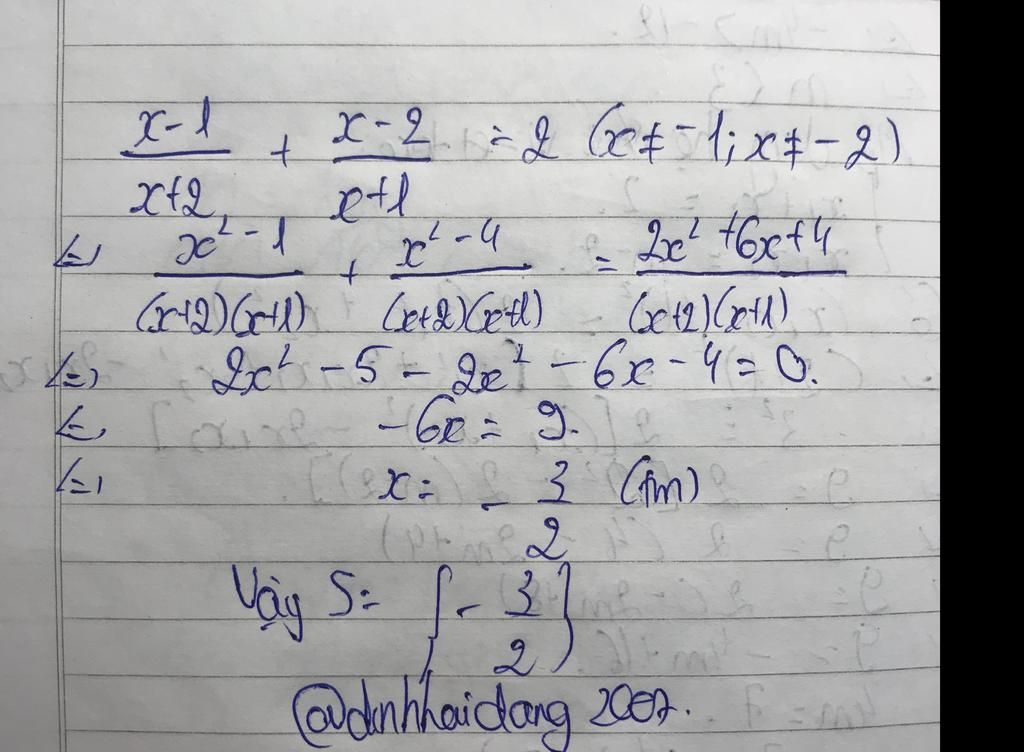 x-1/x+2 + x-2/x+1 = 2 (x ≠ -1; x ≠ -2)
<=> x²-1/(x+2)(x+1) + x²-4/(x+2)(x+1) = 2x²+6x+4/(x+2)(x+1)
<=> 2x² - 5 - 2x² - 6x - 4 = 0.
<=> -6x = 9.
<=> x = - 3/2 (tm)
Vậy S = {- 3/2}
@dinhhaidang 2007.